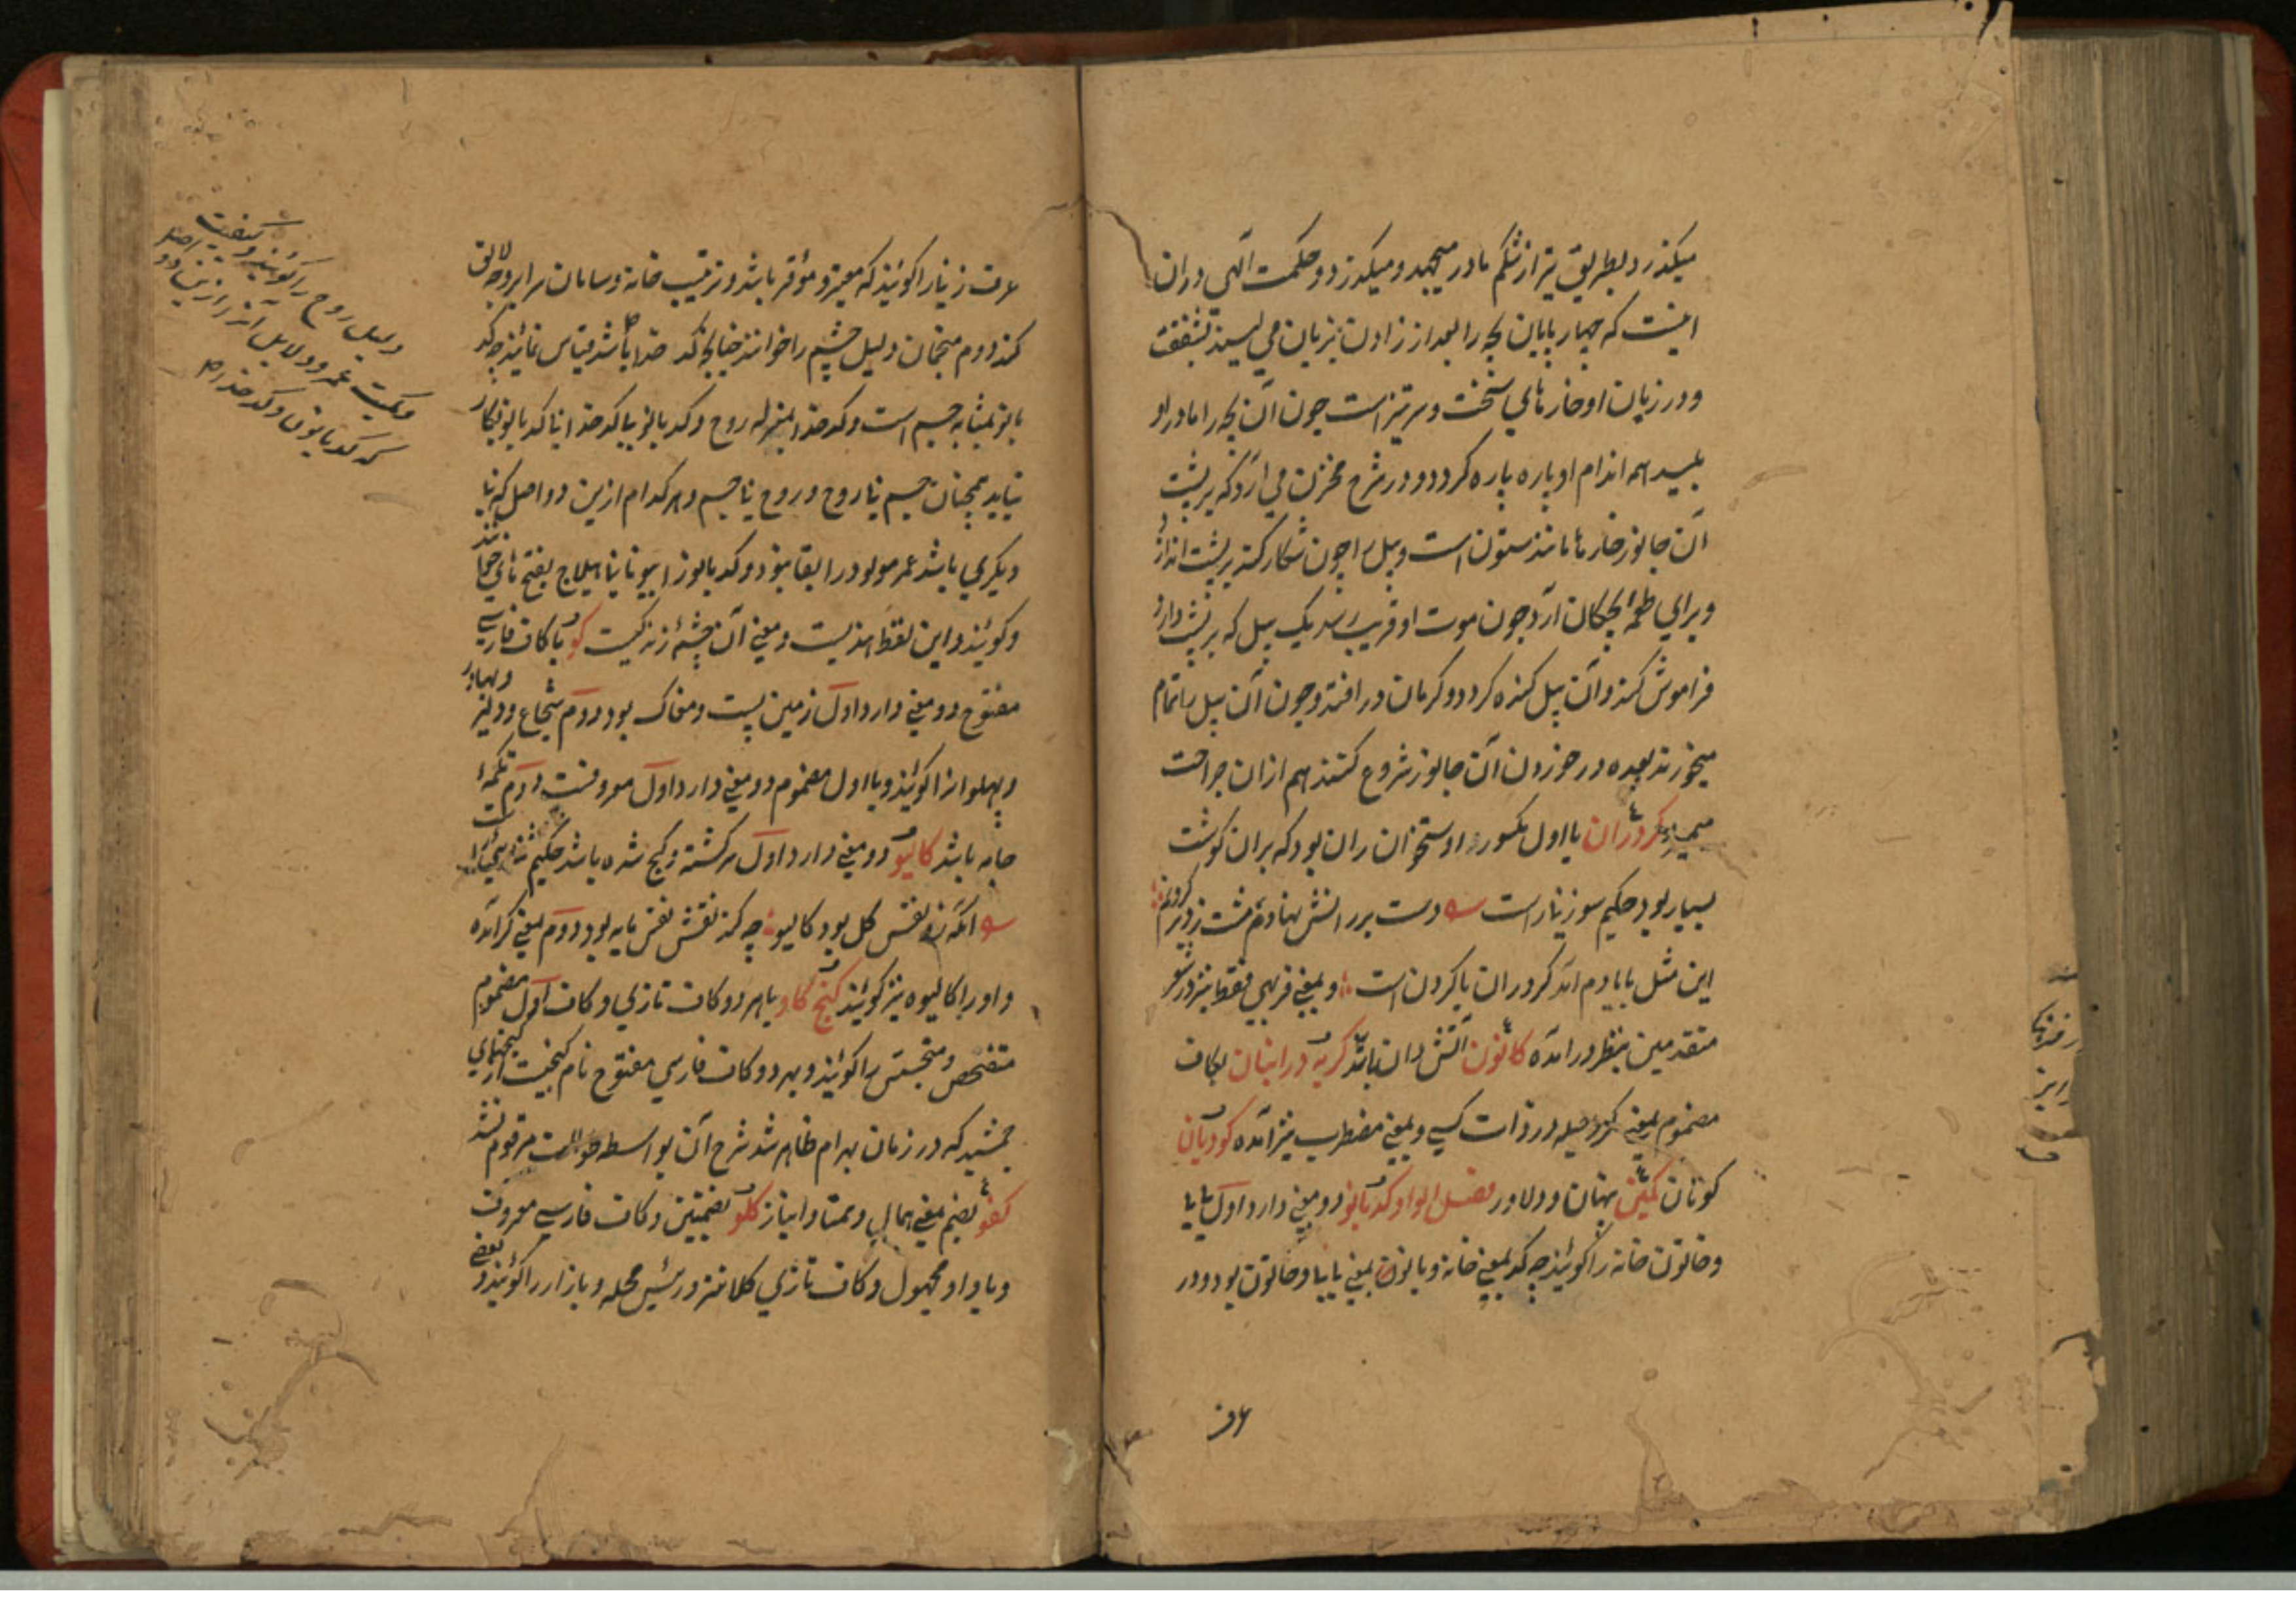 میکذرد بطریق تیر از شکم مادر میجهد و میکذرد و حکمت آلهی دران
اینست که چهار پایان بچه را بعد از زادن بزبان می لیسند بشفقت
و در زبان او خارهای سخت و سر تیز است چون آن بچه را مادر او
بلیسد همه اندام او پاره پاره کردد و در شرح مخزن می آرد که بر پشت
آن جانور خارها مانند ستون است و پیل را چون شکار کند بر پشت اندازد
و برای طعمه بچکان آرد چون موت او قریب رسد یک پیل که بر پشت دارد
فراموش کند و آن پیل کنده کردد و کرمان در افتد و چون آن پیل را تمام
میخورند بعده در خوردن آن جانور شروع کنند هم ازان جراحت
میمیرد کردران با اول مکسور استخوان ران بود که بران کوشت
بسیار بود حکیم سوزنی راست دست بر رانش نهادم مشت زد بر کردنم
این مثل با یادم آمد کردران با کردن است و بمعنی فربهی فقط نیز در شعر
متقدمین بنظر در آمده کانون آتش دان باشد کربه در انبان بکاف
مضموم بمعنی مکر و حیله در ذات کسی و بمعنی مضطرب نیز آمده کودبان
کونان کمین نهان و دلاور فصل الواو کدبانو دو معنی دارد اول بابا
و خاتون خانه را کویند چه کد بمعنی خانه و بانو بمعنی بابا و خاتون بود و در
عرف
عرف زنی را کویند که معتبر و موقر باشد و ترتیب خانه و سامان سرا بر وجه لایق
کند دوم منجمان دلیل جسم را خوانند چنانچه کدخدا باشد قیاس نمایند چه کد
بانو بمثابه جسم است و کدخدا بمنزله روح و کدبانو بی کدخدا یا کدبانو بکار
نیاید همچنان جسم بی روح و روح بی جسم و هر کدام ازین دو اصل که بی
دیکری باشد عمر مولود را بقا نبود و کدبانو را بیونانی هیلاج بفتح های خوانند
و کویند و این لفظ هندیست و معنی آن چشمه زندکیست کو با کاف فارسی
مفتوح دو معنی دارد اول زمین پست و مغاک بود دوم شجاع و دلیر و بهادر
و پهلوان را کویند و با اول مضموم دو معنی دارد اول معروفست دوم تکمه
جامه باشد کالیو دو معنی دارد اول سرکشته و کیج شده باشد حکیم سنائی راست
آنکه نفس کل بود کالیو چه کند نقش نفس مایه بود دوم بمعنی کر آمده
و او را کالیوه نیز کویند کنج کاو با هر دو کاف تازی و کاف اول مضموم
متفحص و متجسس را کویند و بهر دو کاف فارسی مفتوح نام کنجیست از کنجهای
جمشید که در زمان بهرام ظاهر شد شرح آن بواسطه طوالت مرقوم نشد
کفو بضم معنی همال و همتا و انباز کلو بضمتین و کاف فارسی معروف
و با واو مجهول و کاف تازی کلانتر و رئیس محله و بازار را کویند و بعضی
دلیل روح را کویند و کیفیت
و کمیت عمر و دلایل آنرا ازین دو اصل
که کدبانو و کدخداء